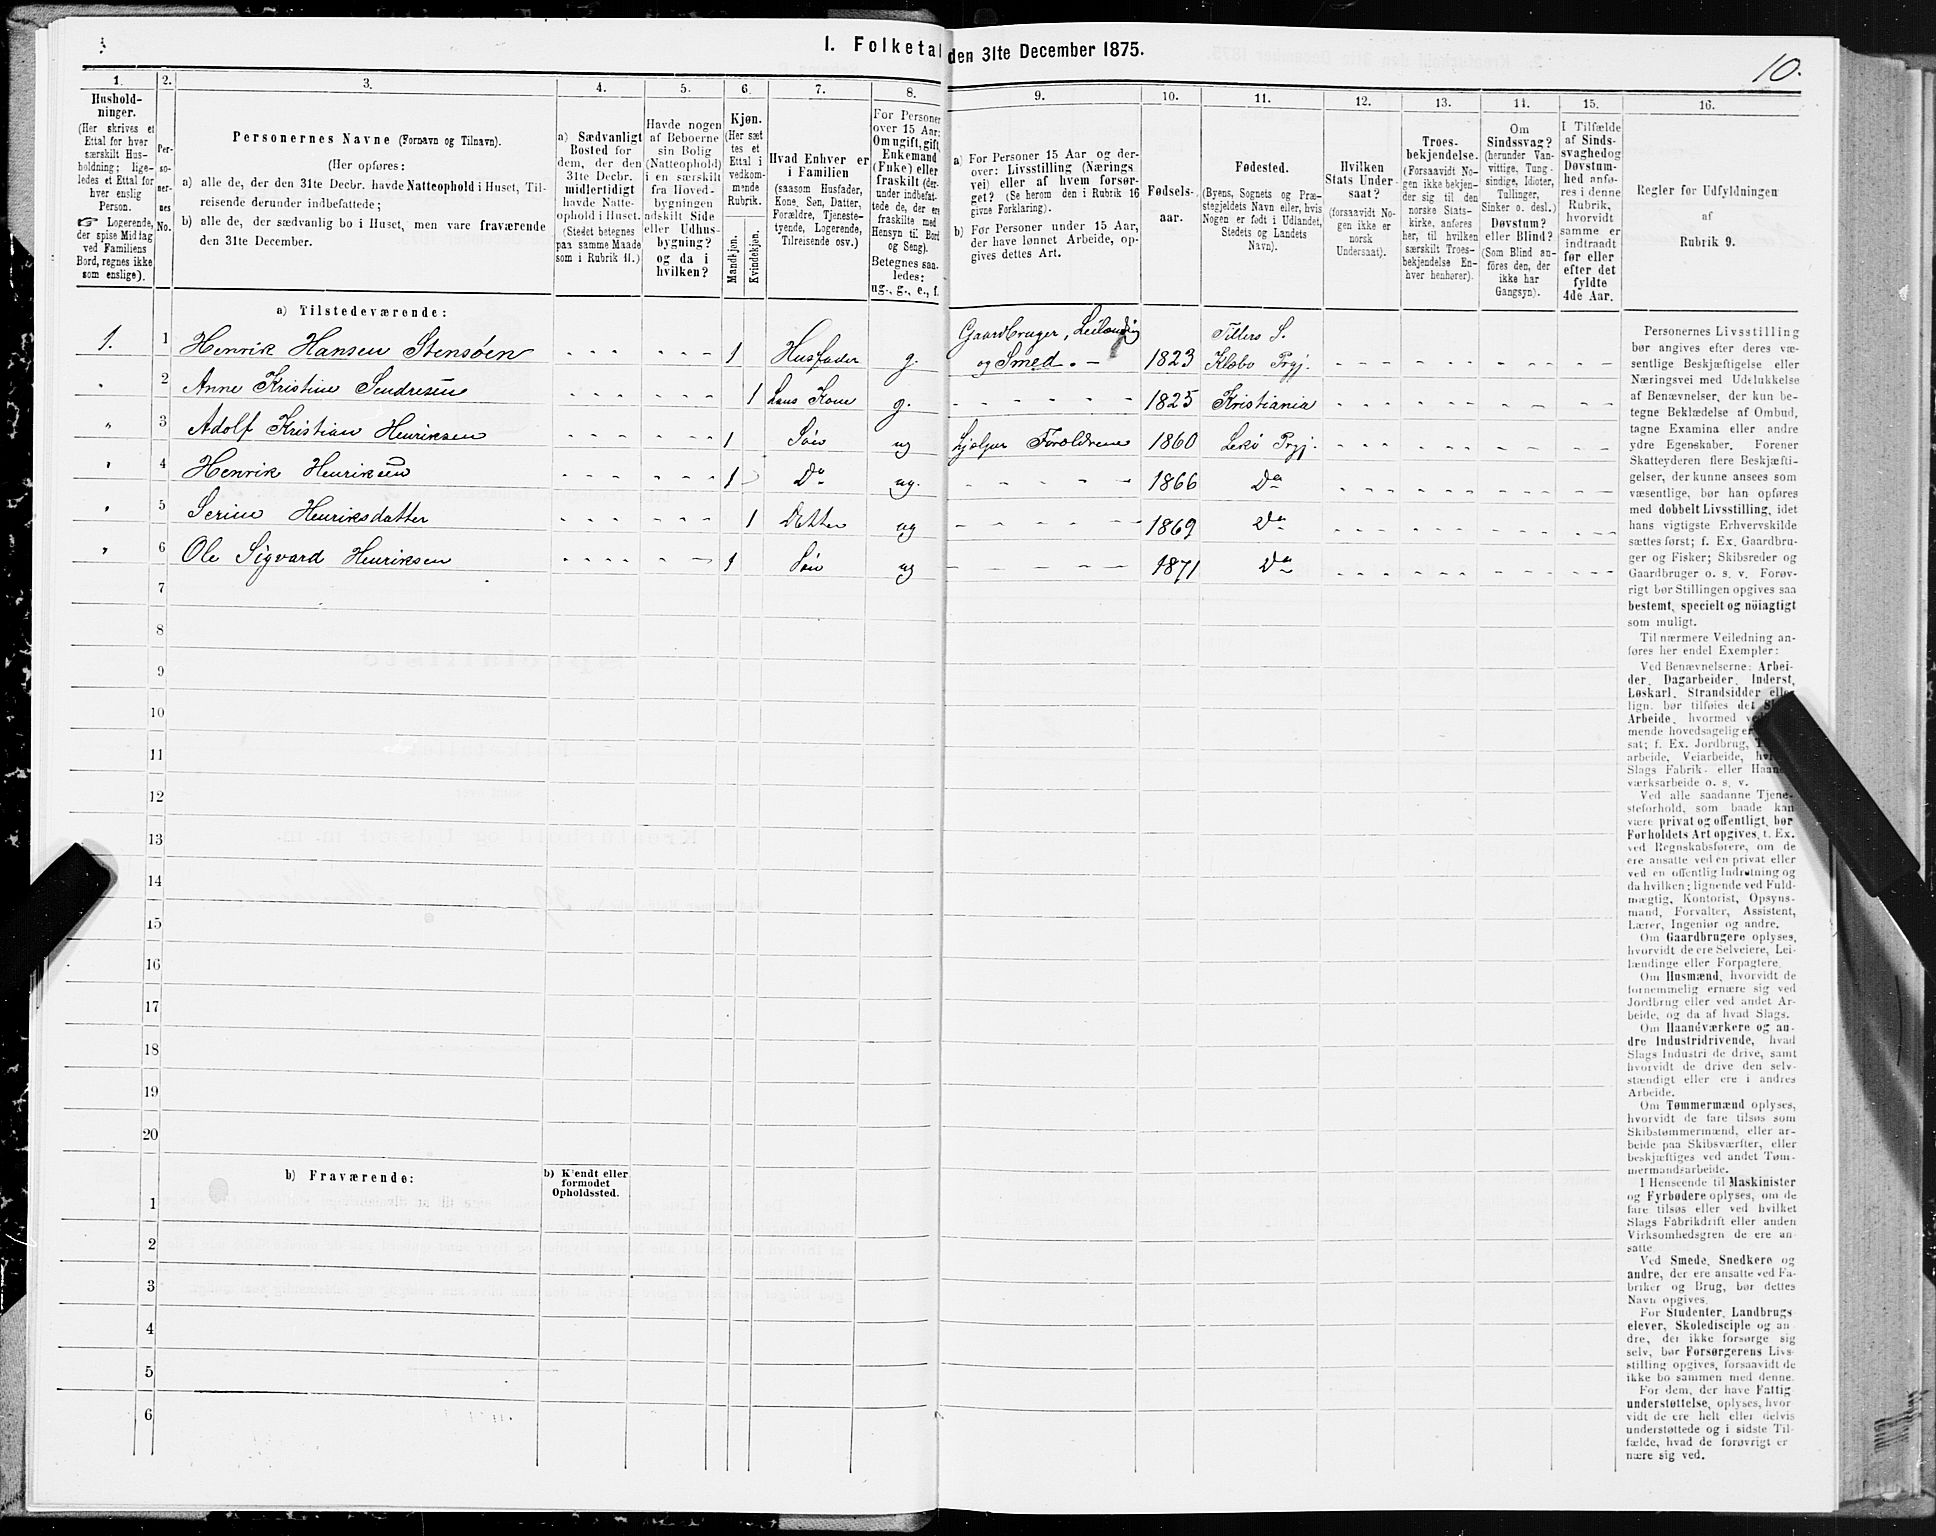 I. Folketal den 31te December 1875.
10.
1.
2.
3.
4.
5.
6.
7.
8.
9.
10.
11.
12.
13.
14.
15.
16.
Hushold-
ninger.
(Her skrives et
Ettal for hver
særskilt Hus-
holdning; lige-
ledes et Ettal for
hver enslig
Person.
☞ Logerende,
der spise Middag
ved Familiens
Bord, regnes ikke
som enslige).
Per-
so-
ner-
nes
No.
Personernes Navne (Fornavn og Tilnavn).
(Her opføres:
a) alle de, der den 31te Decbr. havde Natteophold i Huset, Til-
reisende derunder indbefattede;
b) alle de, der sædvanlig bo i Huset, men vare fraværende
den 31te December.
a) Sædvanligt
Bosted for
dem, der den
31te Decbr.
midlertidigt
havde Natte-
ophold i Huset.
(Stedet betegnes
paa samme Maade
som i Rubrik 11.)
Havde nogen
af Beboerne
sin Bolig
(Natteophold)
i en særskilt
fra Hoved-
bygningen
adskilt Side
eller Udhus-
bygning?
og da i
hvilken?
Kjøn.
(Her sæt
tes et
Ettal i
vedkom-
mende
Rubrik.
Mandkjøn.
Kvindekjøn.
Hvad Enhver er
i Familien
(saasom Husfader,
Kone, Søn, Datter,
Forældre, Tjeneste-
tyende, Logerende,
Tilreisende osv.)
For Personer
over 15 Aar:
Om ugift, gift,
Enkemand
(Enke) eller
fraskilt (der-
under indbefat-
tede de, der ere
fraskilte med
Hensyn til Bord
og Seng).
Betegnes saa-
ledes:
ug., g., e., f.
a) For Personer 15 Aar og der-
over: Livsstilling (Nærings
vei) eller af hvem forsør-
get? (Se herom den i Rubrik 16
givne Forklaring).
b) For Personer under 15 Aar,
der have lønnet Arbeide, op-
gives dettes Art.
Fødsels-
aar.
Fødested.
(Byens, Sognets og Præ-
stegjeldets Navn eller, hvis
Nogen er født i Udlandet,
Stedets og Landets
Navn).
Hvilken
Stats Under-
saat?
(forsaavidt No-
gen ikke er
norsk
Undersaat).
Troes-
bekjendelse.
(Forsaavidt No-
gen ikke bekjen-
der sig til den
norske Stats-
kirke, anføres
her, til hvilken
særskilt Troes-
bekjendelse En-
hver henhører).
Om
Sindssvag?
(herunder Van-
vittige, Tung-
sindige, Idioter,
Tullinger,
Sinker o. desl.)
Døvstum?
eller Blind?
(Som Blind an-
føres den, der
ikke har
Gangsyn).
I Tilfælde
af Sinds-
svaghed og
Døvstum-
hed anfø-
res i denne
Rubrik,
hvorvidt
samme er
indtraadt
før eller
efter det
fyldte
4de Aar.
Regler for Udfyldningen
af
Rubrik 9.
a) Tilstedeværende:
1. 1 Henrik Hansen Stensöen 1 Husfader g. Gaardbruger, Leilænding og Smed. 1823 Tillers S. Klæbo Prgj.
" 2 Anne Kristine 1 hans Kone g. 1825 Kristiania
" 3 Adolf Kristian Henriksen 1 Sön ug Hjelper Forældrene 1860 Lekö Prgj.
" 4 Henrik Henriksen 1 Do ug. 1866 Do
" 5 Serine Henriksdatter 1 Datter ug 1869 Do
" 6 Ole Sigvard Henriksen 1 Sön ug 1871 Do
7
8
9
10
11
12
13
14
15
16
17
18
19
20
b) Fraværende:
b) Kjendt eller
formodet
Opholdssted.
1
2
3
4
5
6
Personernes Livsstilling
bør angives efter deres væ-
sentlige Beskjæftigelse eller
Næringsvei med Udelukkelse
af Benævnelser, der kun be-
tegne Beklædelse af Ombud,
tagne Examina eller andre
ydre Egenskaber. Forener
Skatteyderen flere Beskjæfti-
gelser, der kunne ansees som
væsentlige, bør han opføres
med dobbelt Livsstilling, idet
hans vigtigste Erhvervskilde
sættes først; f. Ex. Gaardbru-
ger og Fisker; Skibsreder og
Gaardbruger o. s. v. Forøv-
rigt bør Stillingen opgives saa
bestemt, specielt og nöiagtigt
som muligt.
Til nærmere Veiledning an-
føres her endel Exempler:
Ved Benævnelserne: Arbei-
der, Dagarbeider, Inderst,
Løskarl, Strandsidder eller
lign. bør tilføies det
Arbeide, hvormed
mende hovedsagelig er
sat; f. Ex. Jordbrug,
arbeide, Veiarbeide,
Slags Fabrik- eller Haand-
værksarbeide o. s. v.
Ved alle saadanne Tjene-
steforhold, som baade kan
være privat og offentligt, bør
Forholdets Art opgives, t. Ex.
ved Regnskabsførere, om de
ere ansatte ved en privat eller
ved en offentlig Indretning og
da hvilken; lignende ved Fuld-
mægtig, Kontorist, Opsyns-
mand, Forvalter, Assistent,
Lærer, Ingeniør og andre.
Om Gaardbrugere oplyses,
hvorvidt de ere Selveiere, Lei-
lændinge eller Forpagtere.
Om Husmænd, hvorvidt de
fornemmelig ernære sig ved
Jordbrug eller ved andet Ar-
beide, og da af hvad Slags.
Om Haandværkere og an-
dre Industridrivende, hvad
Slags Industri de drive, samt
hvorvidt de drive den selv-
stændigt eller ere i andres
Arbeide.
Om Tømmermænd oplyses,
hvorvidt de fare tilsøs som
Skibstømmermænd, eller ar-
beide paa Skibsværfter, eller
beskjæftiges ved andet Tøm-
mermandsarbeide.
I Henseende til Maskinister
og Fyrbødere oplyses, om de
fare tilsøs eller ved hvilket
Slags Fabrikdrift eller anden
Virksomhedsgren de ere an-
satte
Ved Smede, Snedkere og
andre, der ere ansatte ved Fa-
briker og Brug, bør dettes
Navn opgives.
For Studenter, Landbrugs-
elever, Skoledisciple og an-
dre, der ikke forsørge sig
selv, bør Forsørgerens Livs-
stilling opgives, forsaavidt de
ikke bo sammen med denne.
For dem, der have Fattig-
understøttelse, oplyses, hvor-
vidt de ere helt eller delvis
understøttede og i sidste Til-
fælde, hvad de forøvrigt er
nære sig ved.